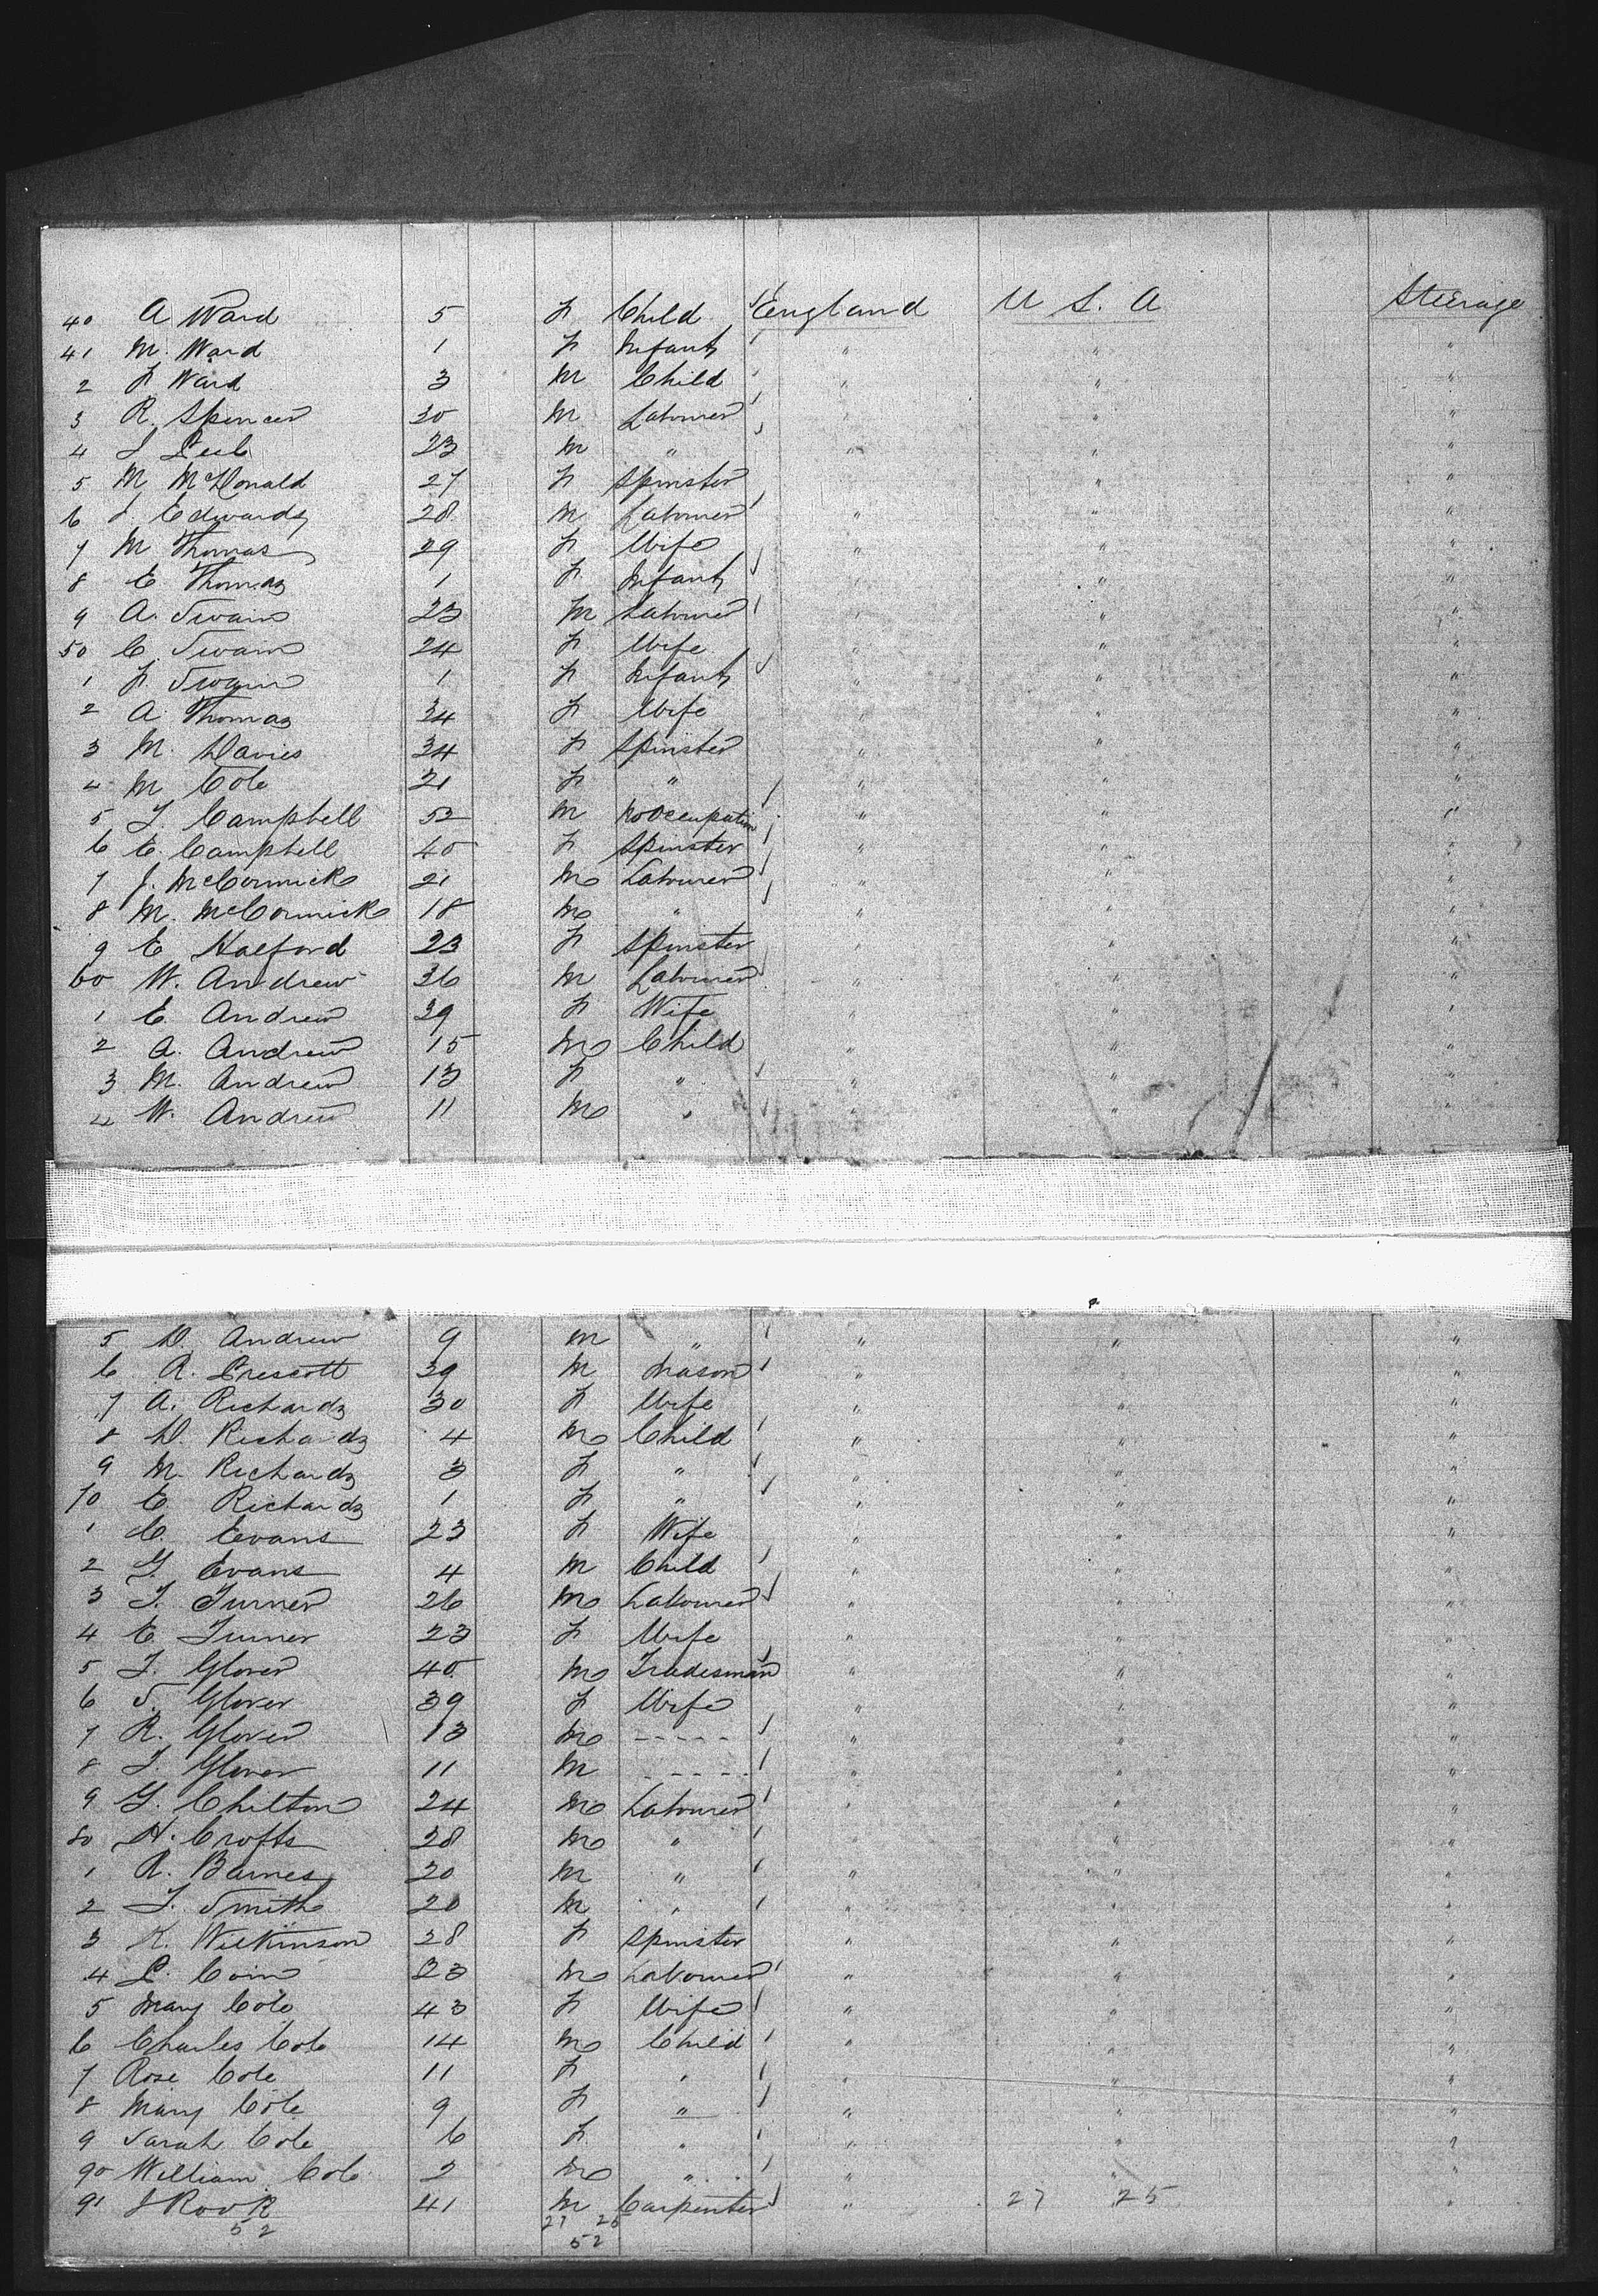 40 A Ward 5 F Child England U S. A Steerage
41 M. Ward 1 F Infant " " "
2 F Ward 3 M Child " " "
3 R. Spencer 20 M Labourer " " "
4 J 23 M " " " "
5 M McDonald 27 F Spinster " "
6 J. Edwards 28 M Labourer " " "
7 M Thomas 29 F Wife " " "
8 E Thomas 1 F Infant " " "
9 A. Swain 23 M Labourer " " "
50 C. Swain 24 F Wife " " "
1 F. Swain 1 F Infant " " "
2 A. Thomas 34 F Wife " " "
3 M. Davies 34 F Spinster " " "
4 M Cole 21 F " " " "
5 J Campbell 52 M No Occupation " " "
6 E. Campbell 40 F Spinster " " "
7 J. McCormick 21 M Labourer " " "
8 M. McCormick 18 M " " " "
9 E Halford 23 F Spinster " " "
60 W. Andrew 36 M Labourer " " "
1 E. Andrew 39 F Wife " "
2 A. Andrew 15 M Child " " "
3 M. Andrew 13 F " " " "
4 W. Andrew 11 M " " " "
5 D. Andrew 9 M " " " "
6 A. Prescott 39 M Mason " " "
7 A. Richards 30 F Wife " " "
8 D. Richards 4 M Child " " "
9 M. Richards 3 F " " " "
70 E Richards 1 F " " " "
1 C Evans 23 F Wife " " "
2 G Evans 4 M Child " " "
3 J. Turner 26 M Labourer " " "
4 E. Turner 23 F Wife " " "
5 J. Glover 40 M Tradesman " " "
6 S. Glover 39 F Wife " " "
7 R. Glover 13 M ----- " " "
8 J. Glover 11 M ----- " " "
9 G. Chilton 24 M Labourer " " "
80 H. Crofts 28 M " " " "
1 R. Barnes 20 M " " " "
2 J. Smith 20 M " " " "
3 K. Wilkinson 28 F Spinster " " "
4 P. Coin 23 M Labourer " " "
5 Mary Cole 43 F Wife " " "
6 Charles Cole 14 M Child " " "
7 Rose Cole 11 F " " " "
8 Mary Cole 9 F " " " "
9 Sarah Cole 6 F " " " "
90 William Cole 2 M " " " "
91 J Rook 41 M Carpenter " 27 25 "
52 27 25
52